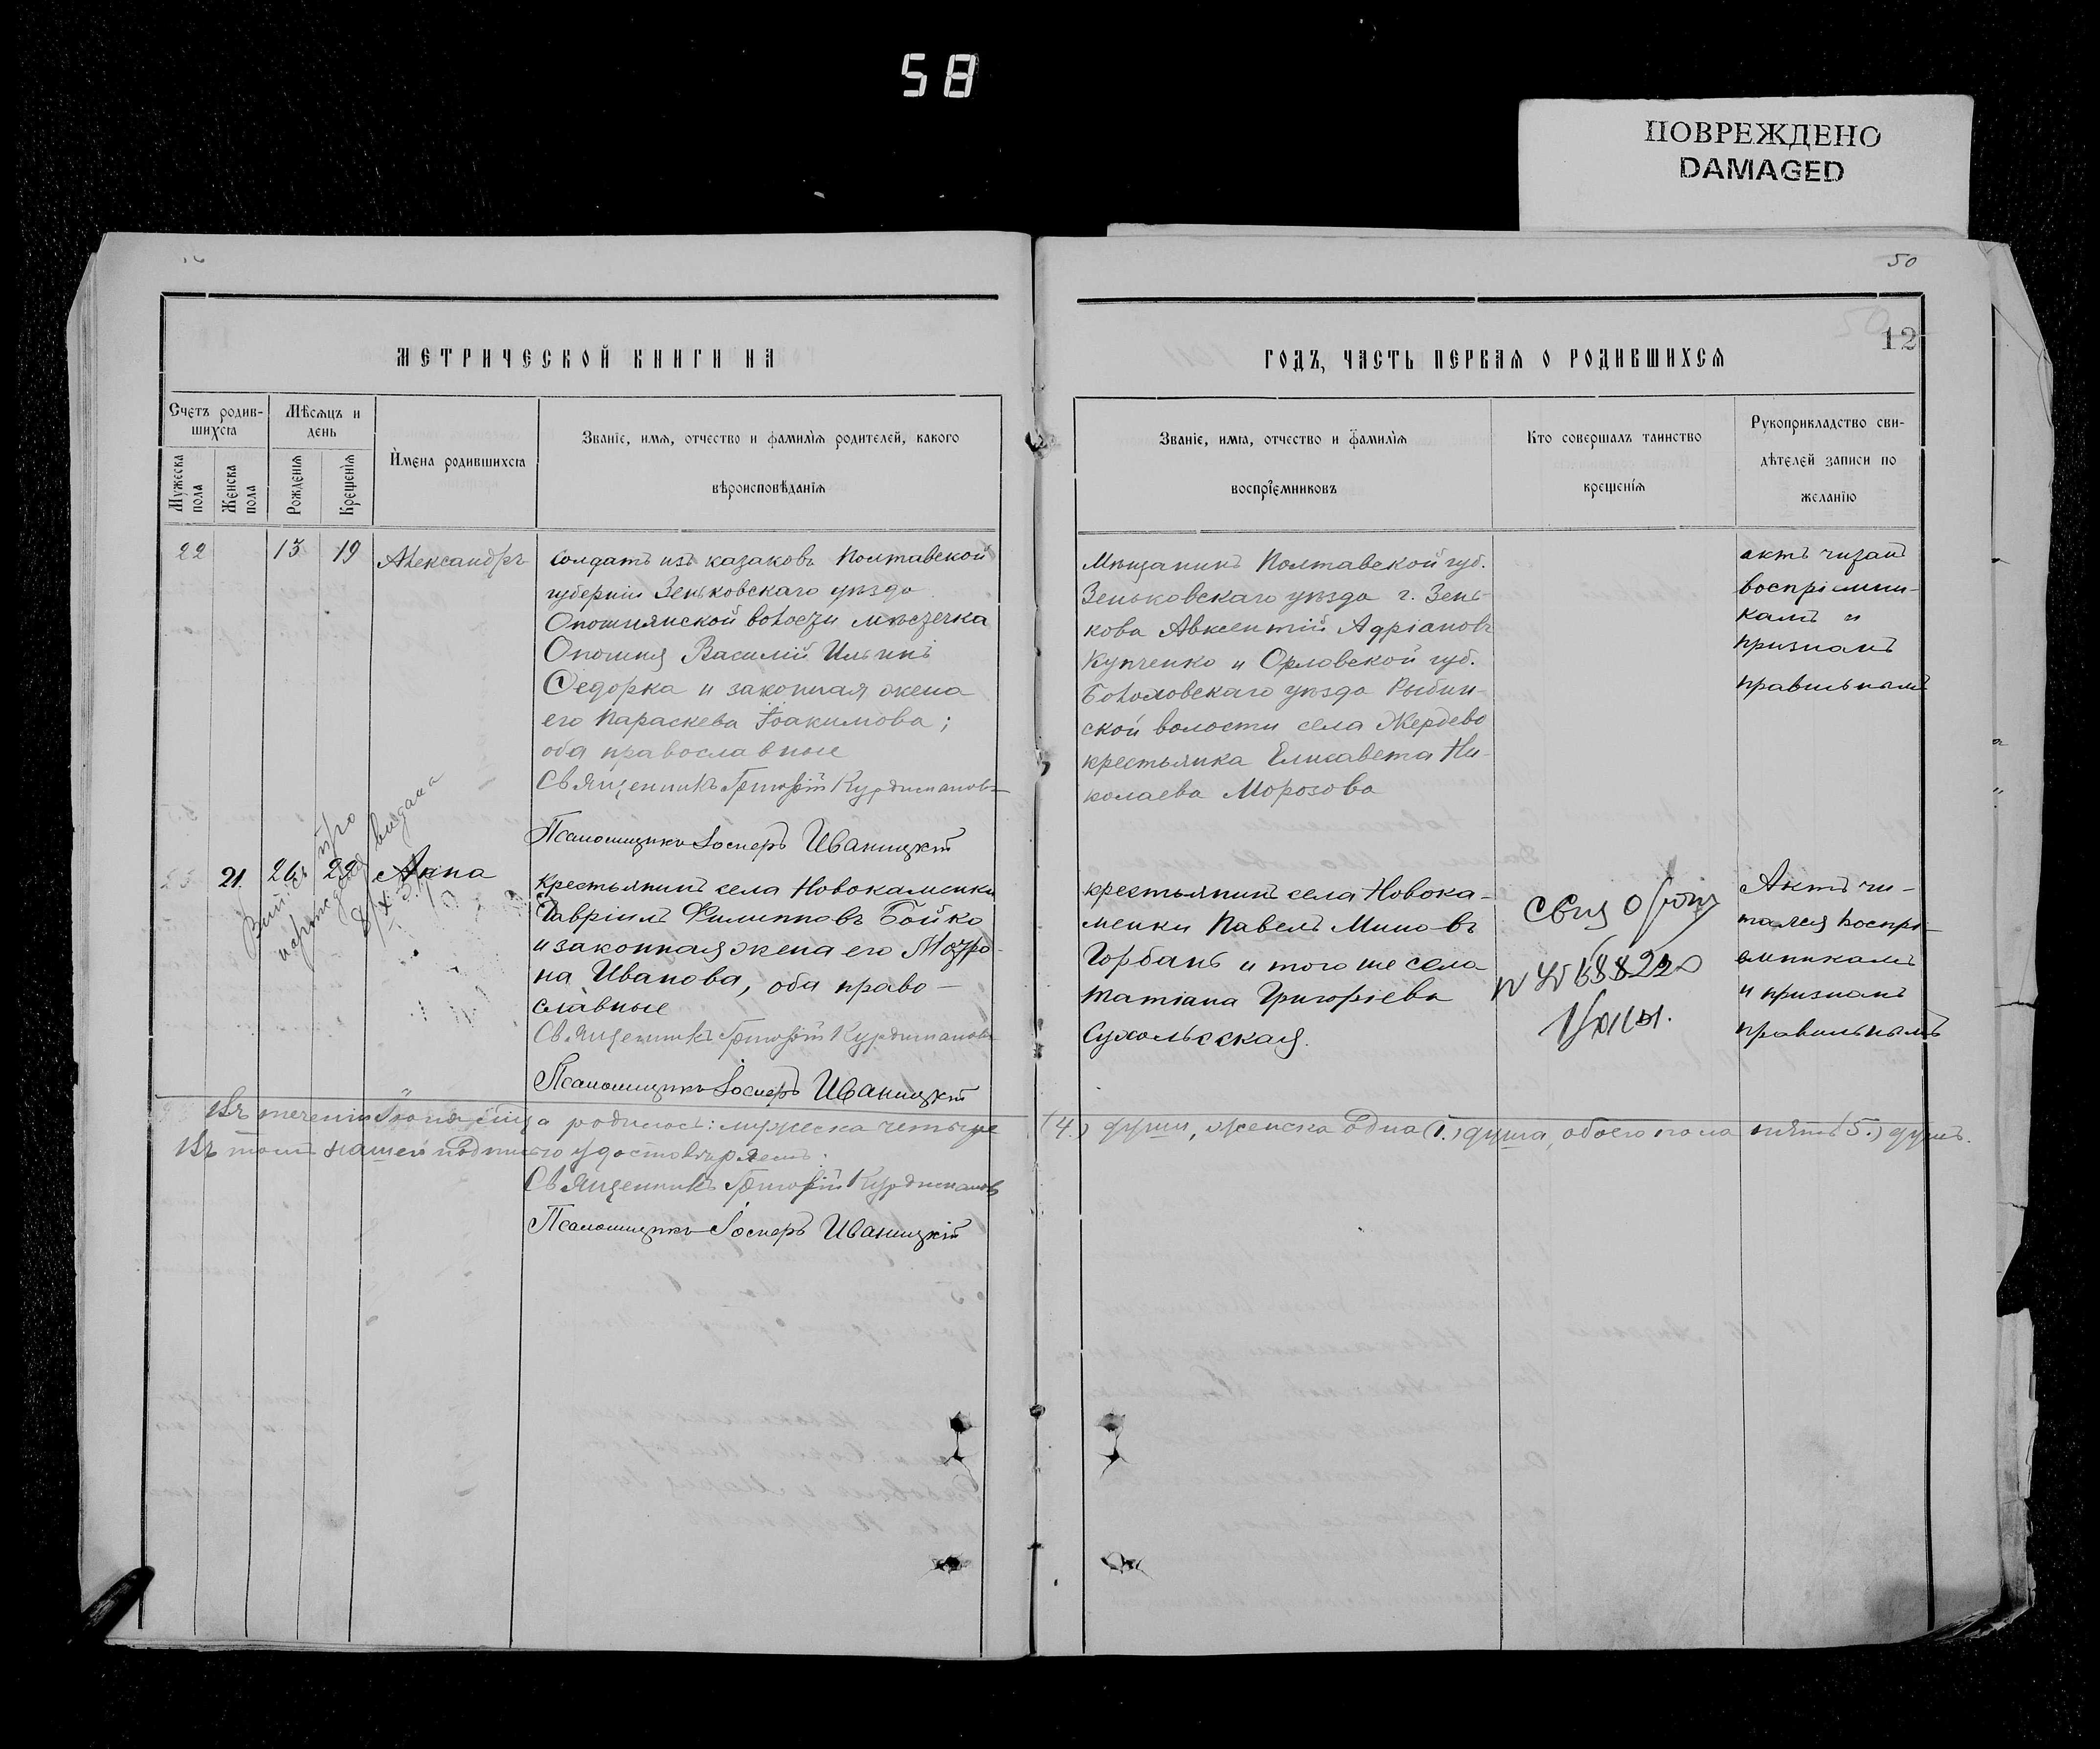 58
ПОВРЕЖДЕНО
DAMAGED
50
12
МЕТРИЧЕСКОЙ КНИГИ НА
ГОДЪ, ЧАСТЬ ПЕРВАЯ О РОДИВШИХСЯ
Счетъ родив-
шихся
Мужеска
пола
Женска
пола
Мѣсяцъ и
день
Рожденія
Крещенія
Имена родившихся
Званіе, имя, отчество и фамилія родителей, какого
вѣроисповѣданія
Званіе, имя, отчество и фамилія
воспріемниковъ
Кто совершалъ таинство
крещенія
Рукоприкладство сви-
дѣтелей записи по
желанію
22
13
19
Александръ
солдатъ изъ казаковъ Полтавской
губерніи Зеньковскаго уѣзда
Опошнянской волости мѣстечка
Опошня Василій Ильинъ
Федорка и законная жена
его Параскева Іоакимова;
оба православные
Священникъ Григорій
Псаломщикъ Іосифъ Иваницкій
Мѣщанинъ Полтавской губ.
Зеньковскаго уѣзда г. Зень-
кова Авксентій Адріановъ
Купченко и Орловской губ.
Болховскаго уѣзда
ской волости села Жердево
крестьянка Елисавета Ни-
колаева Морозова
актъ читанъ
воспріемни-
камъ и
признанъ
правильнымъ
21.
26
22
Анна
видана
крестьянинъ села Новокаменки
Гавріилъ Филипповъ Бойко
и законная жена его Матро-
на Иванова, оба право-
славные
Священникъ Григорій
Псаломщикъ Іосифъ Иваницкій
крестьянинъ села Новока-
менки Павелъ Миновъ
Горбань и того же села
Татіана Григоріева
Актъ чи-
тался воспрі-
емникамъ
и признанъ
правильнымъ
Въ теченіи мѣсяца родилось: мужеска четыре (4.) души, женска одна (1.) душа, обоего пола пять (5.) душъ.
Въ томъ нашею подписью удостовѣряемъ:
Священникъ Григорій
Псаломщикъ Іосифъ Иваницкій